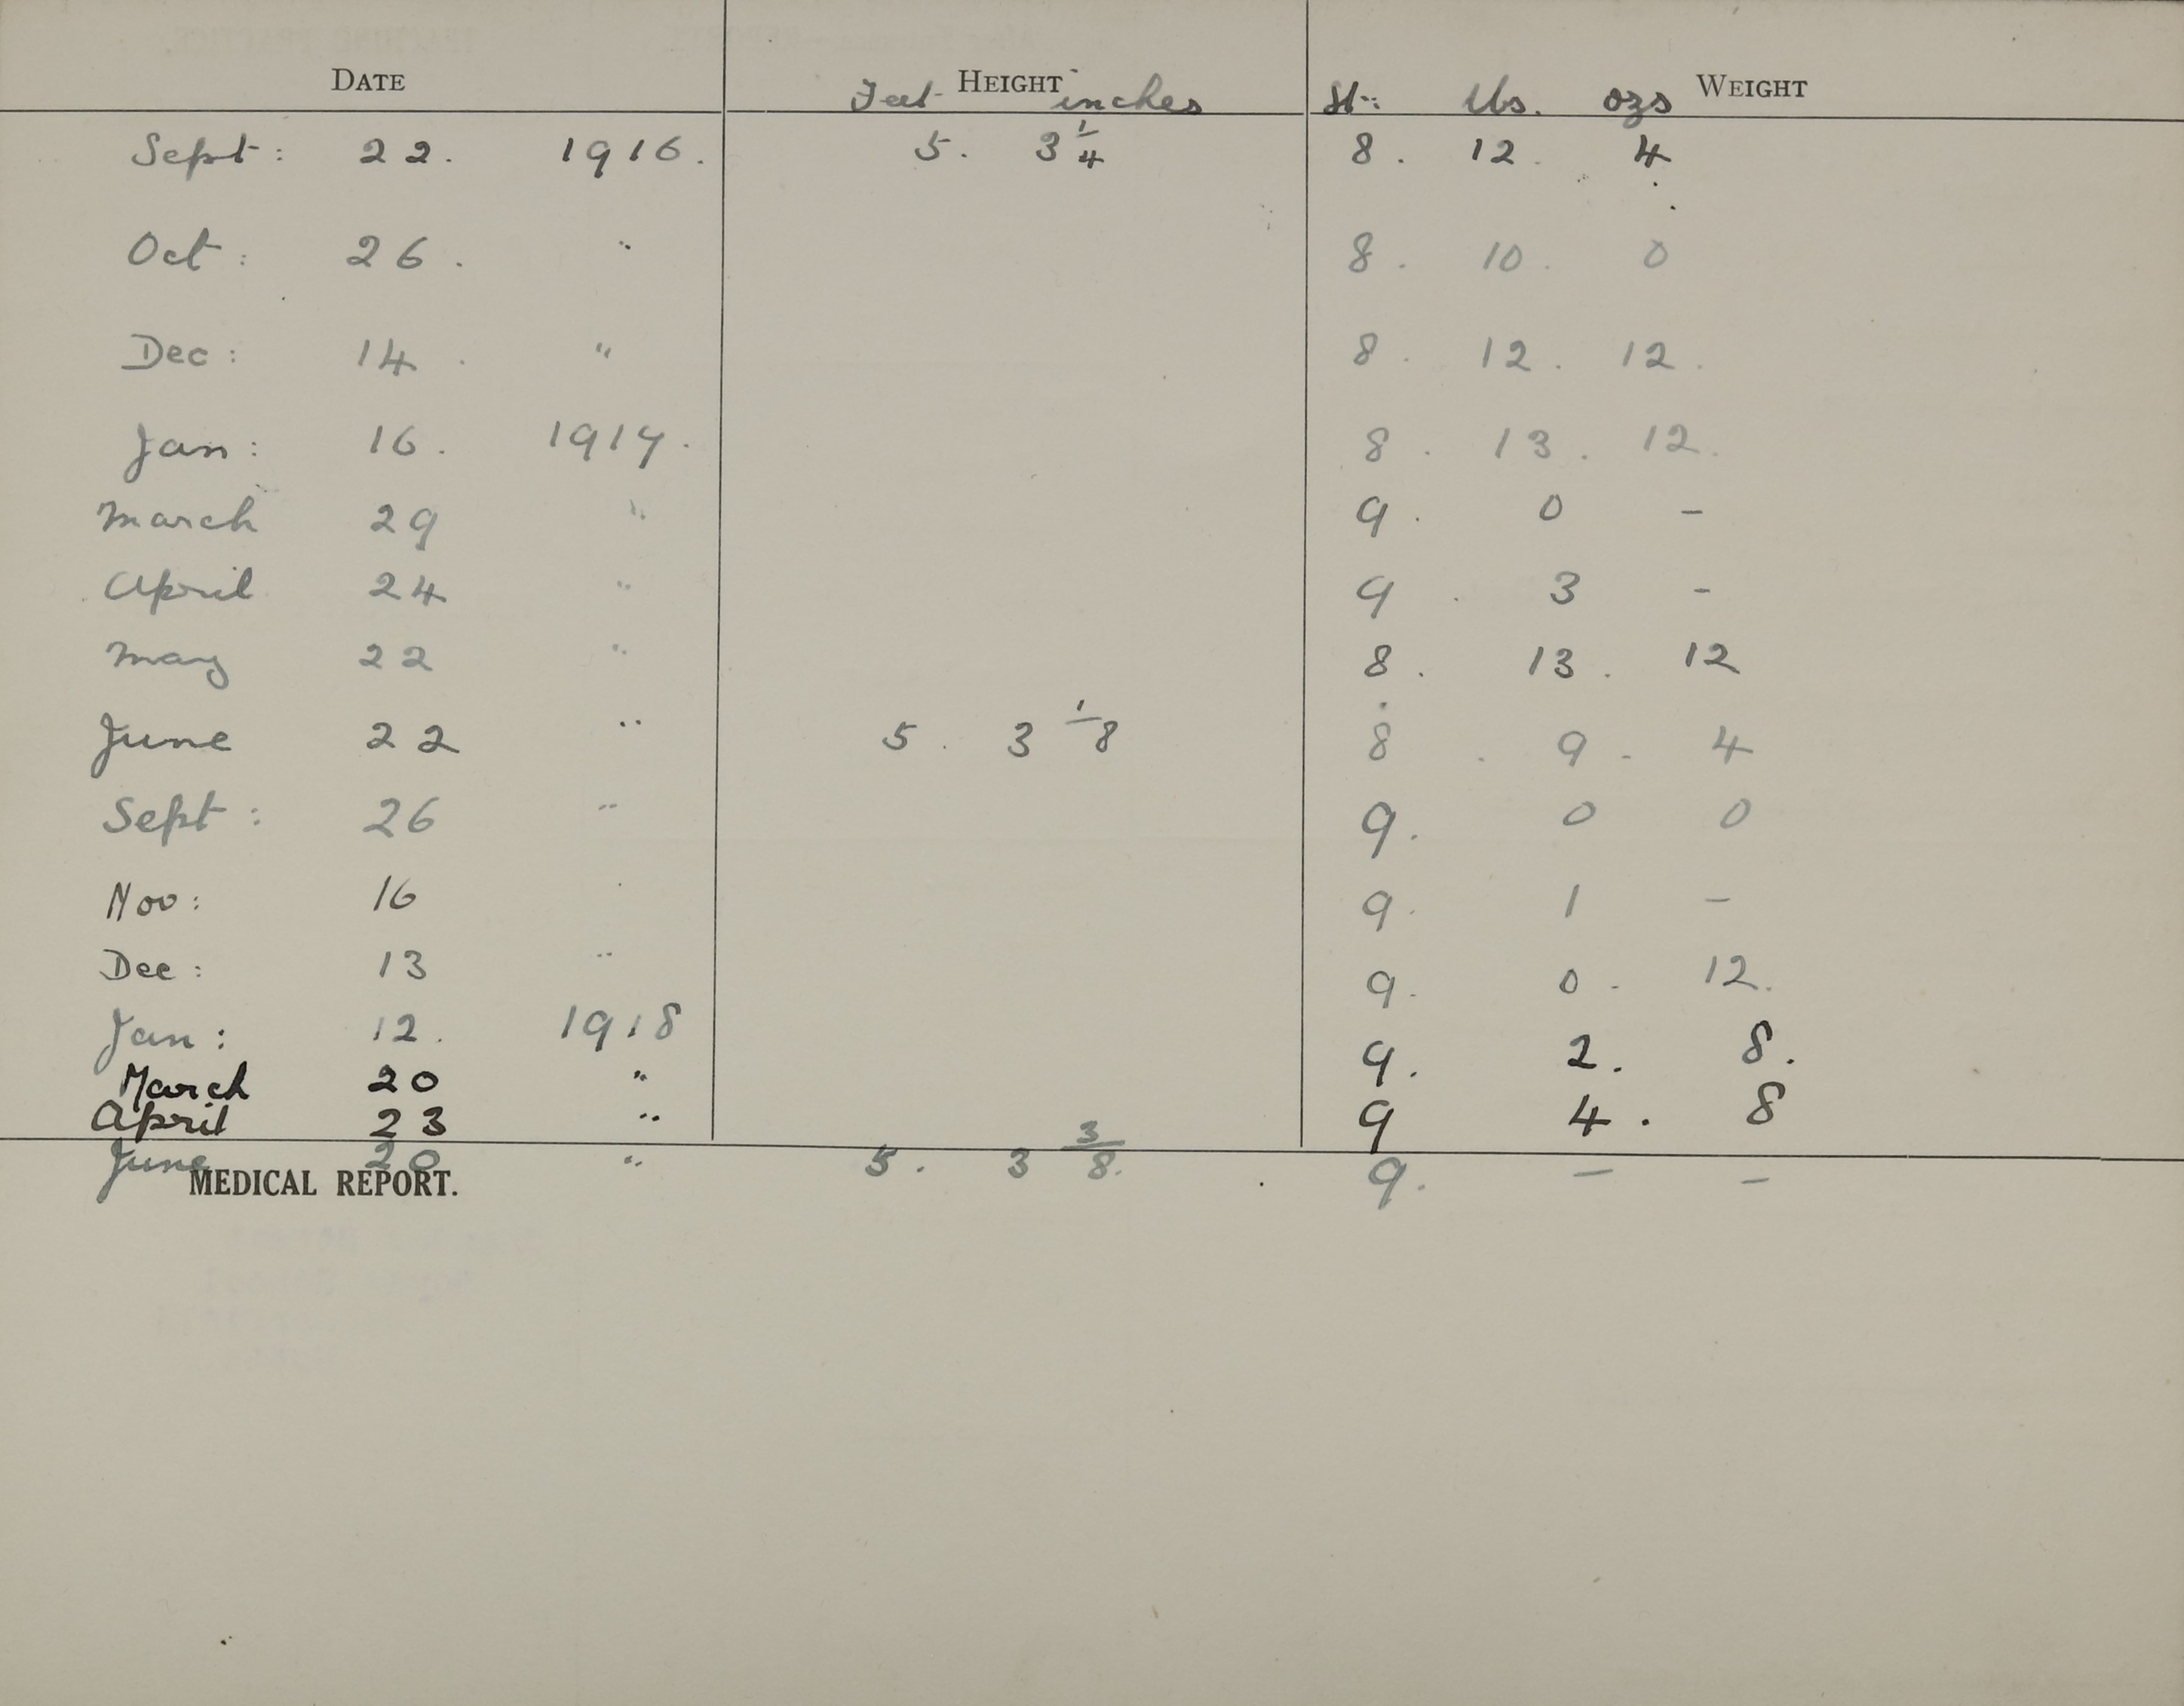 DATE HEIGHT WEIGHT
Feet inches St: lbs. ozs
Sept: 22. 1916. 5. 3 1/4 8. 12. 4
Oct: 26. " 8. 10. 0
Dec: 14. " 8. 12. 12.
Jan: 16. 1917. 8. 13. 12.
March 29 " 9. 0 -
April 24 " 9. 3 -
May 22 " 8. 13. 12
June 22 " 5. 3 1/8 8. 9. 4
Sept: 26 " 9. 0 0
Nov: 16 9. 1 -
Dec: 13 " 9. 0. 12.
Jan: 12. 1918 9. 2. 8.
March 20 "
April 23 " 9 4. 8
June 20 " 5. 3 3/8. 9. - -
MEDICAL REPORT.